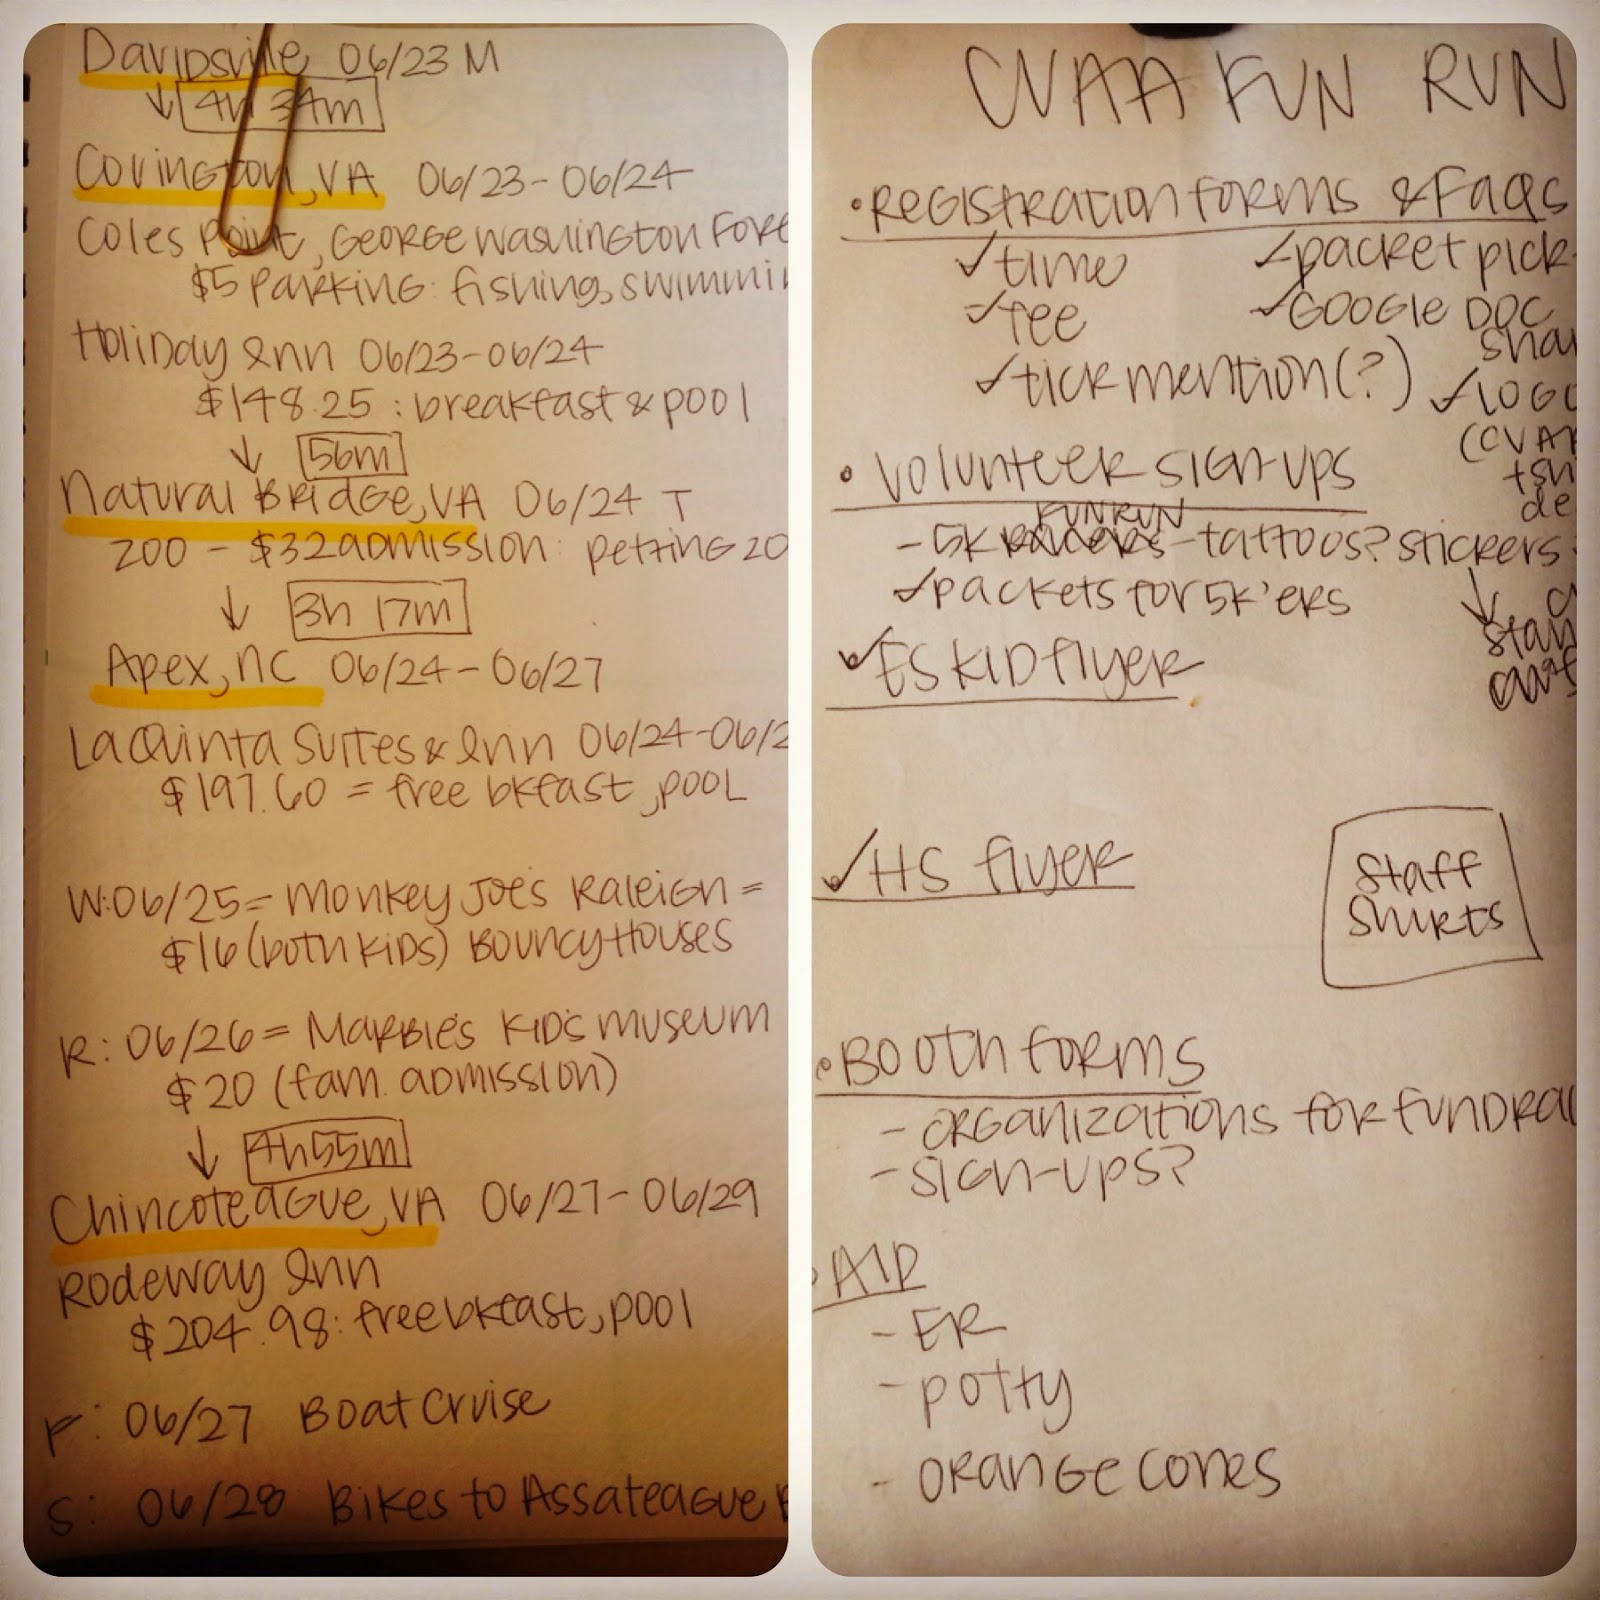 Davidsville 06/23 M
↓ 4h 34m
Covington, VA 06/23-06/24
Coles Point, George Washington Fore
$5 parking: fishing, swimmi
Holiday Inn 06/23-06/24
$148.25 : breakfast & pool
↓ 56m
Natural Bridge, VA 06/24 T
ZOO - $32 admission: petting zo
↓ 3h 17m
Apex, NC 06/24-06/27
La Quinta Suites & Inn 06/24-06/2
$197.60 = free bkfast, pool
W: 06/25 = Monkey Joe's Raleigh =
$16 (both kids) Bouncy Houses
R: 06/26 = Marble's Kid's Museum
$20 (fam. admission)
↓ 4h 55m
Chincoteague, VA 06/27-06/29
Rodeway Inn
$204.98: free bkfast, pool
F: 06/27 Boat Cruise
S: 06/28 Bikes to Assateague B
CVAA FUN RUN
• Registration forms & FAQs
✓ time ✓ packet pick-
✓ fee ✓ Google Doc
sha
✓ tick mention (?) ✓ logo
(CVAA
tsh
de
• Volunteer sign-ups
fun run
- 5K - tattoos? stickers
✓ packets for 5k'ers
↓ stam
✓ ES KID flyer
✓ HS flyer
Staff
Shirts
• Booth forms
- organizations for fundrai
- sign-ups?
• AID
- ER
- potty
- orange cones